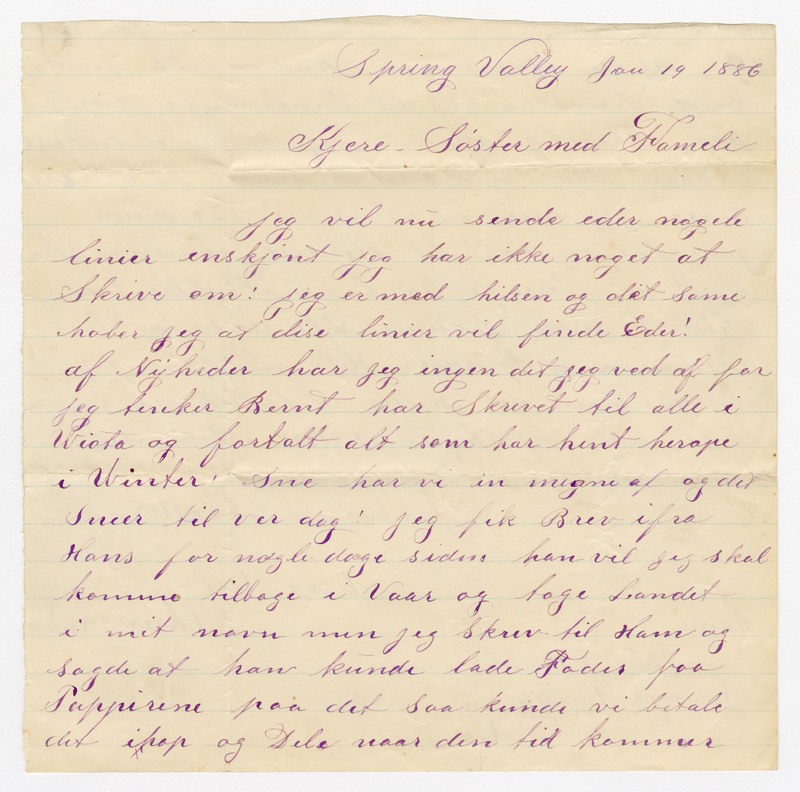 Spring Valley Jan 19 1886
Kjere - Søster med Fameli
jeg vil nu sende eder nogele
linier enskjønt jeg har ikke noget at
Skrive om! jeg er med hilsen og det same
haber jeg at dise linier vil finde Eder!
af Nyheder har jeg ingen det jeg ved af for
jeg tenker Bernt har Skrevet til alle i
Wiota og fortalt alt som har hent herope
i Winter! Sne har vi en megne af og det
Sneer til ver dag! jeg fik Brev ifra
Hans for nogle dage siden han vil jeg skal
komme tilbage i Vaar og tage Landet
i mit navn men jeg Skrev til Ham og
sagde at han kunde lade Fades paa
Pappirene paa det saa kunde vi betale
det ihop og Dele naar den tid kommer